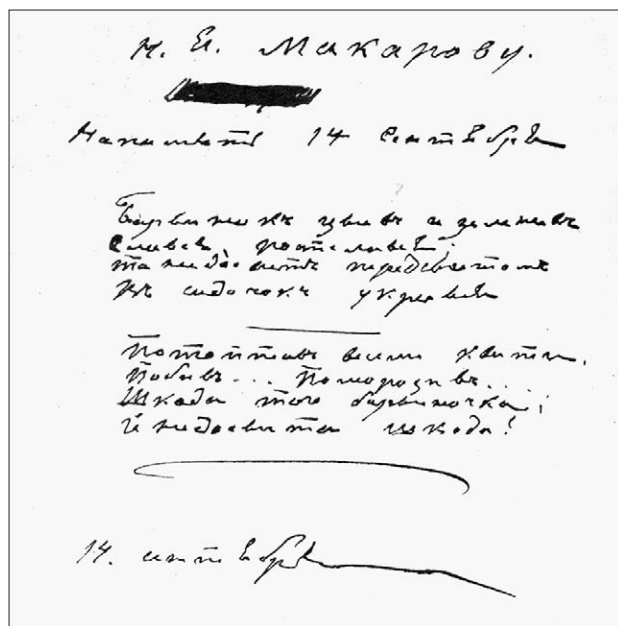 Н. Я. Макарову.
На память 14 Сентября
Барвинокъ цвивъ и зеленивъ
Слався, ростилався;
та недосвитъ передсвитомъ
въ садочокъ укрався
Потоптавъ весели квиты,
Побивъ... Поморозивъ...
Шкода того барвиночка,
й недосвита шкода!
14. сентября